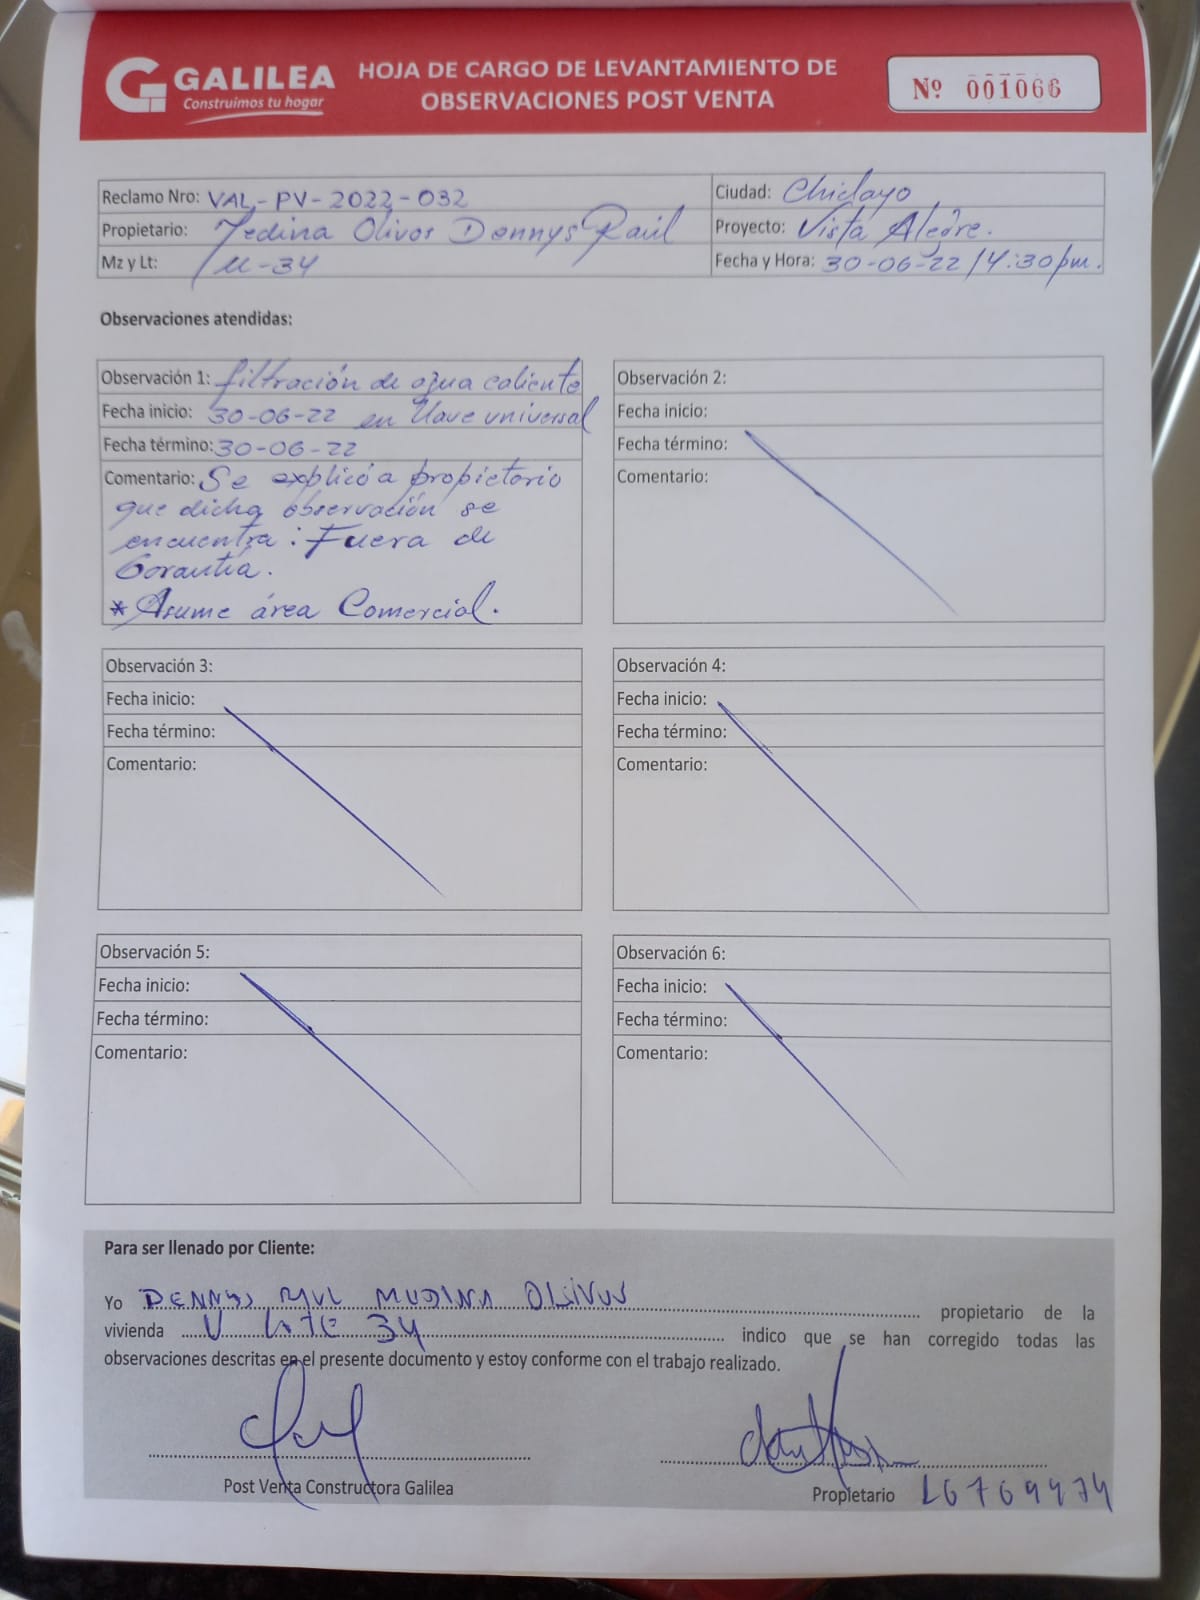 GALILEA
Construimos tu hogar
HOJA DE CARGO DE LEVANTAMIENTO DE
OBSERVACIONES POST VENTA
Nº 001066
Reclamo Nro: VAL-PV-2022-032
Ciudad: Chiclayo
Propietario: Medina Olivos Dennys Raúl
Proyecto: Vista Alegre.
Mz y Lt: U-34
Fecha y Hora: 30-06-22 / 4:30pm.
Observaciones atendidas:
Observación 1: filtración de agua caliente
Fecha inicio: 30-06-22 en llave universal
Fecha término: 30-06-22
Comentario: Se explicó a propietario
que dicha observación se
encuentra: Fuera de
Garantía.
* Asume área Comercial.
Observación 2:
Fecha inicio:
Fecha término:
Comentario:
Observación 3:
Fecha inicio:
Fecha término:
Comentario:
Observación 4:
Fecha inicio:
Fecha término:
Comentario:
Observación 5:
Fecha inicio:
Fecha término:
Comentario:
Observación 6:
Fecha inicio:
Fecha término:
Comentario:
Para ser llenado por Cliente:
Yo DENNYS RAUL MEDINA OLIVOS propietario de la
vivienda U LOTE 34 indico que se han corregido todas las
observaciones descritas en el presente documento y estoy conforme con el trabajo realizado.
Post Venta Constructora Galilea
Propietario